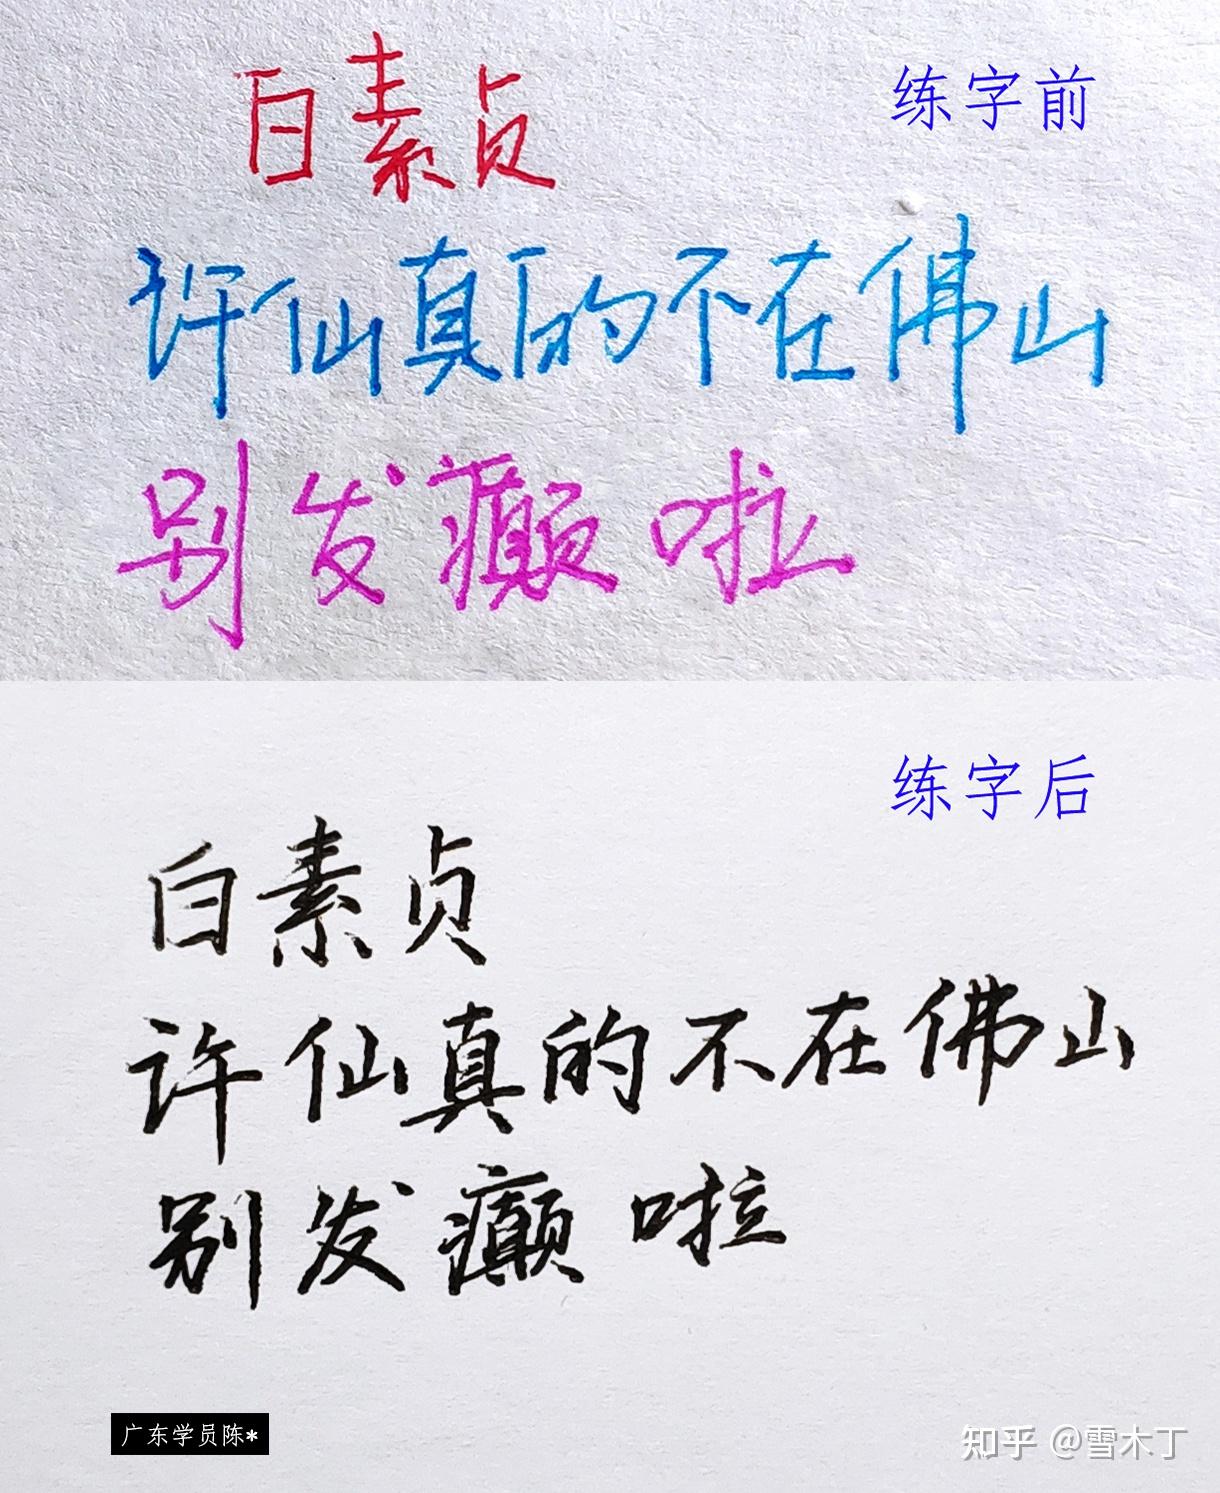 练字前
白素贞
许仙真的不在佛山
别发癫啦
练字后
白素贞
许仙真的不在佛山
别发癫啦
广东学员陈*
知乎 @雪木丁